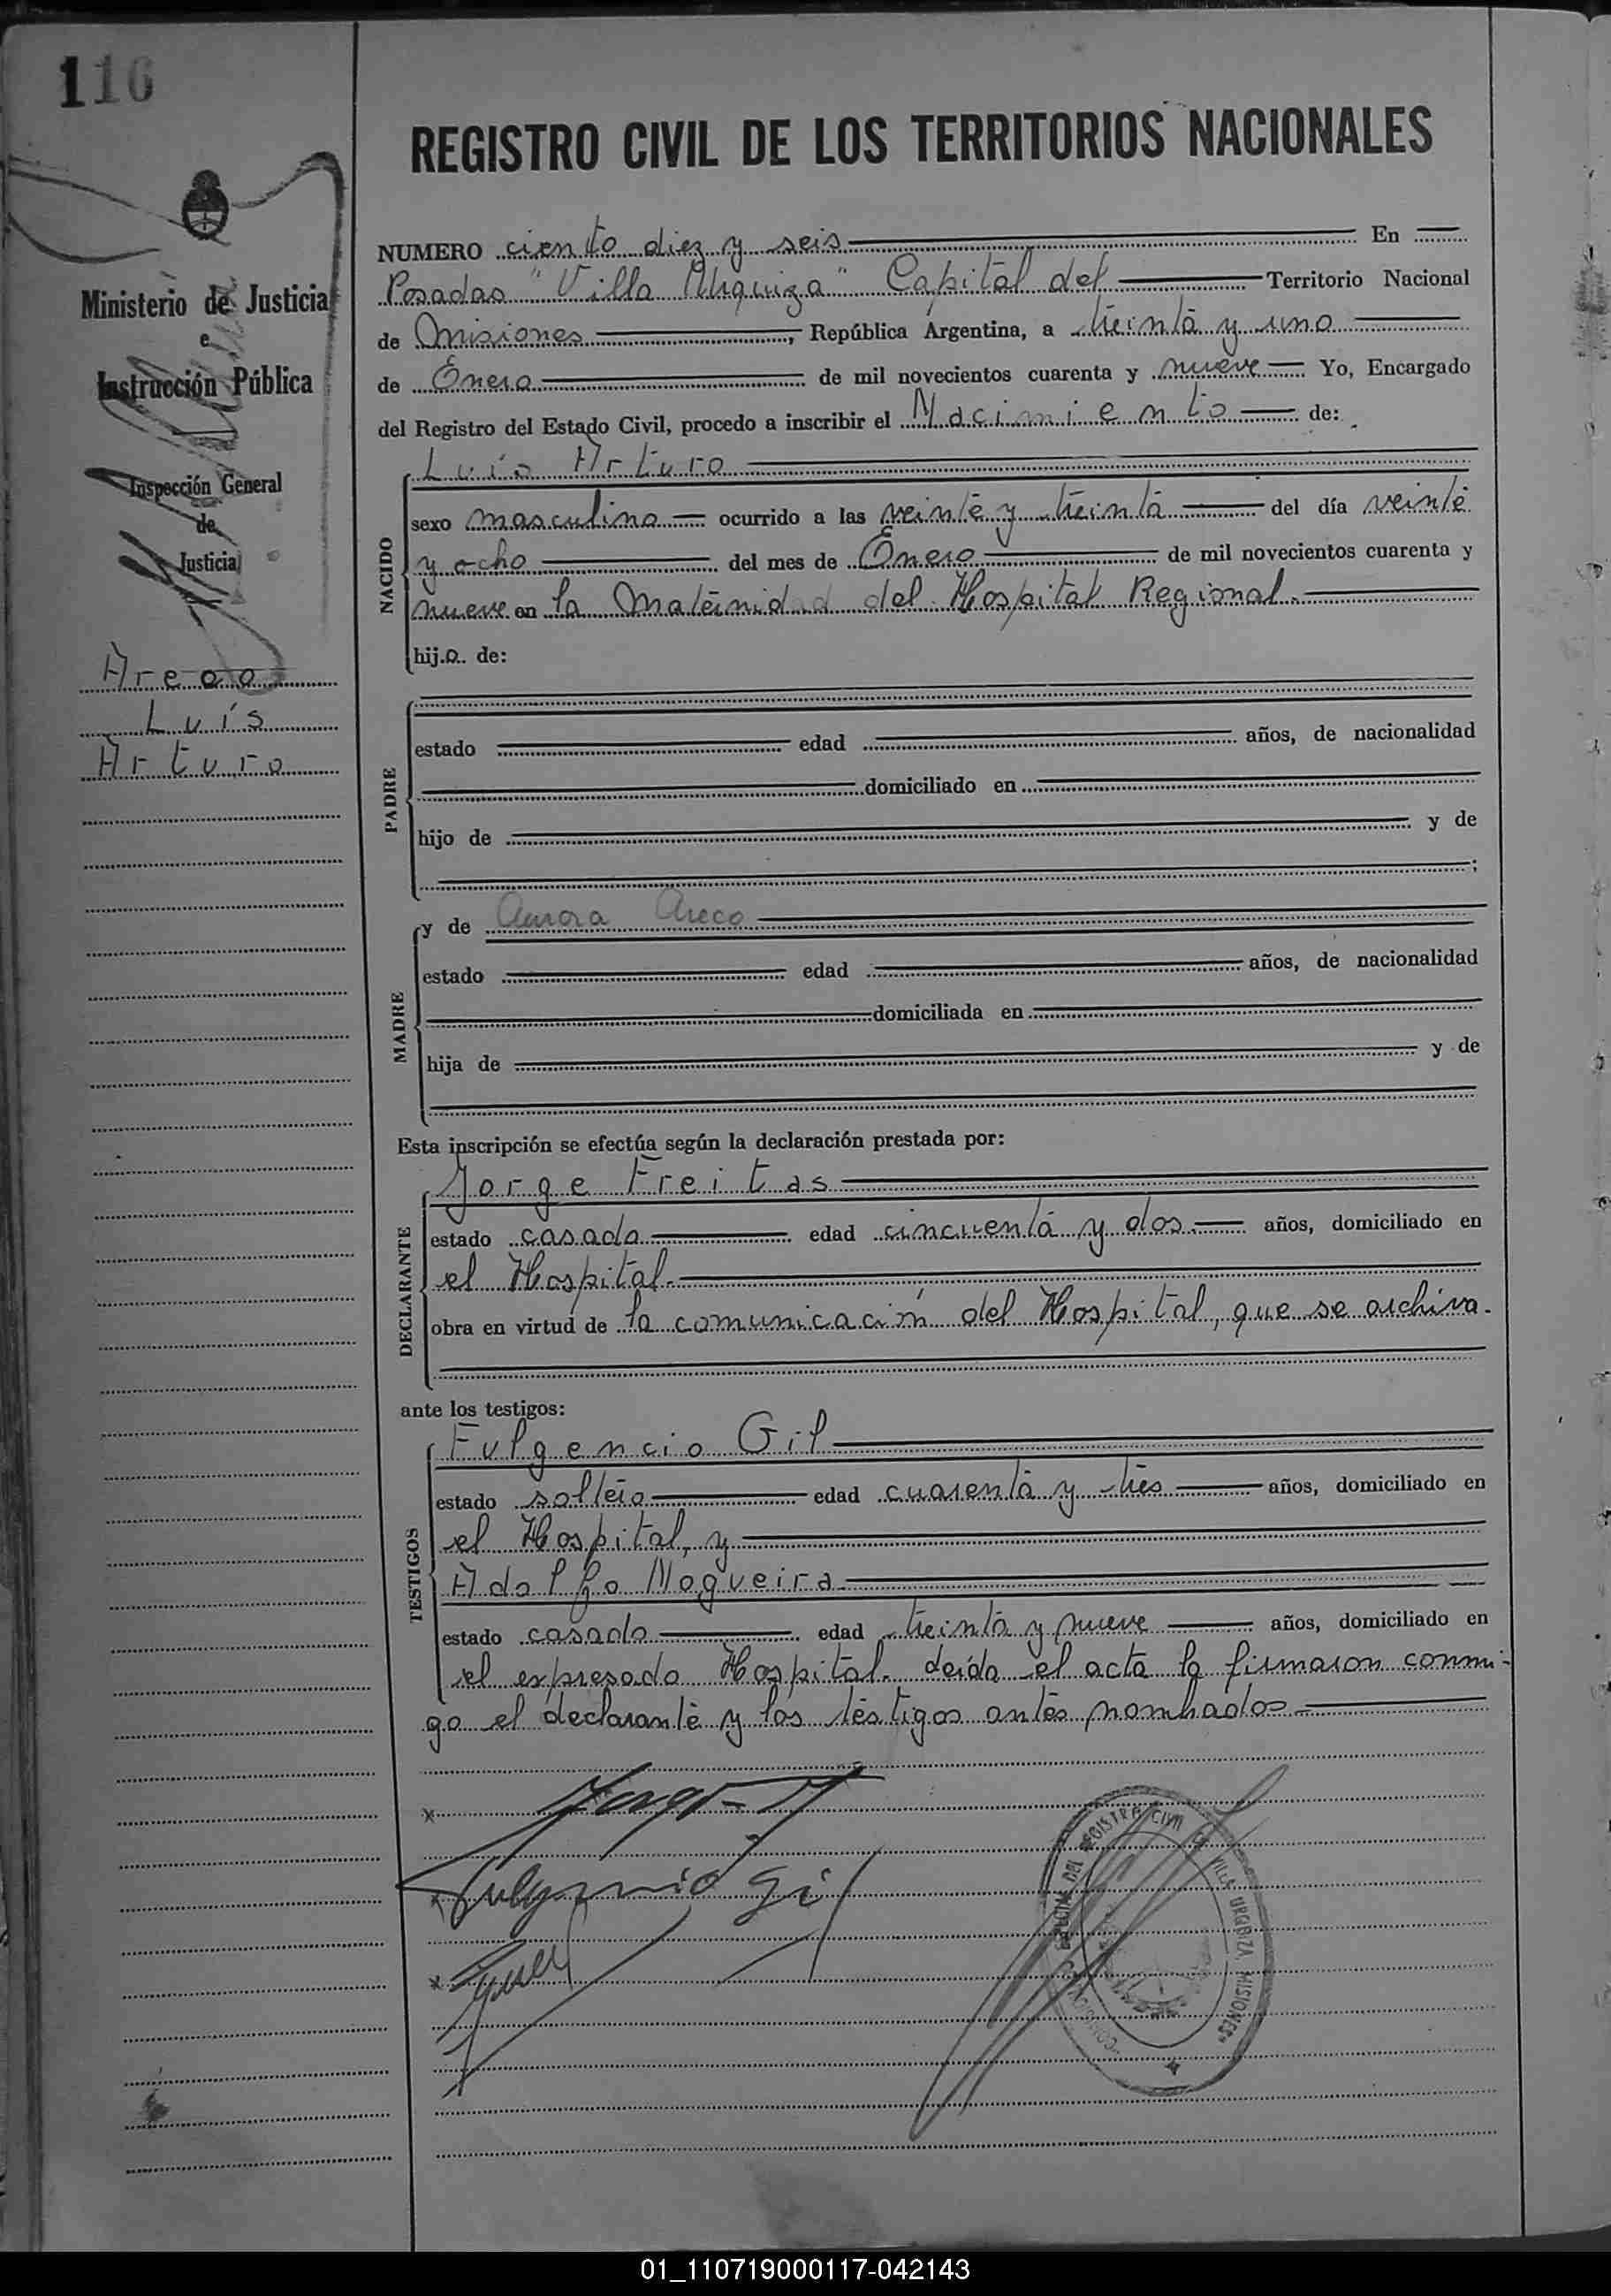 116
REGISTRO CIVIL DE LOS TERRITORIOS NACIONALES
Ministerio de Justicia
e
Instrucción Pública
Inspección General
de
Justicia
Areco
Luís
Arturo
NUMERO ciento diez y seis En
Posadas "Villa Urquiza" Capital del Territorio Nacional
de Misiones, República Argentina, a treinta y uno
de Enero de mil novecientos cuarenta y nueve Yo, Encargado
del Registro del Estado Civil, procedo a inscribir el Nacimiento de:
NACIDO
Luís Arturo
sexo masculino ocurrido a las veinte y treinta del día veinte
y ocho del mes de Enero de mil novecientos cuarenta y
nueve en la Maternidad del Hospital Regional.
hijo de:
PADRE
estado edad años, de nacionalidad
domiciliado en
hijo de y de
;
MADRE
y de Aurora Areco
estado edad años, de nacionalidad
domiciliada en
hija de y de
Esta inscripción se efectúa según la declaración prestada por:
DECLARANTE
Jorge Freitas
estado casado edad cincuenta y dos años, domiciliado en
el Hospital.
obra en virtud de la comunicación del Hospital, que se archiva.
ante los testigos:
TESTIGOS
Fulgencio Gil
estado soltero edad cuarenta y tres años, domiciliado en
el Hospital, y
Adolfo Nogueira
estado casado edad treinta y nueve años, domiciliado en
el expresado Hospital. Leída el acta la firmaron conmi-
go el declarante y los testigos antes nombrados
Fulgencio Gil
DEL REGISTRO CIVIL VILLA URQUIZA MISIONES
01_110719000117-042143